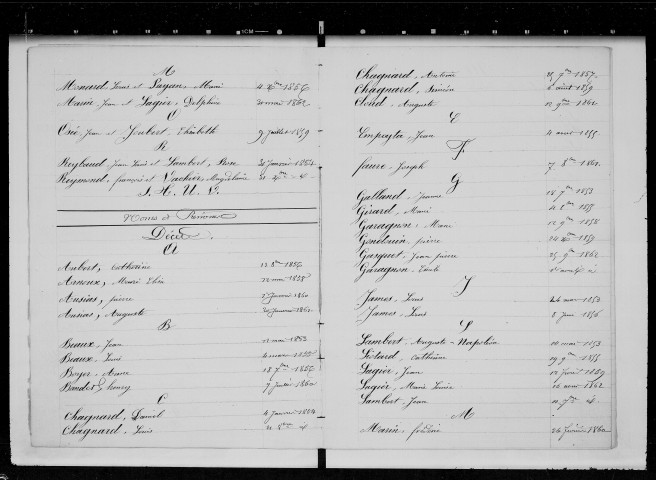 M
Monaud, Louis et Payan, Marie 4 Xbre 1856
Marin, Jean et Lagier, Delphine 20 mai 1862
O
Osé, Jean et Joubert, Elisabeth 9 juillet 1859
R
Reybaud, Jean Louis et Lambert, Rose 30 janvier 1854
Reymond, françois et Vachier, Magdelaine
S. T. U. V.
Noms et Prénoms
Décès.
A
Aubert, Catherine 1856
Arnoux, Marie Elisa 1858
Ansias, pierre 27 janvier 1860
Ansias, Auguste janvier 1862
B
Beaux, Jean mai 1853
Beaux, Louis 4 mars
Boyer, Anne 18 7bre 1856
Baudet, henry 7 juillet 1860
C
Chagnard, Daniel 4 janvier 1854
Chagnard, Louis
Chagnard, Antoine 9bre 1857
Chagnard, Siméon 6 août 1859
Cloud, Auguste 12 9bre 1862
E
Empeyta, Jean 4 1855
F
faure, Joseph 7 8bre 1862
G
Galland, Jeanne 18 7bre 1853
Girard, Marie 1855
Garagnon, Marie 12 9bre 1858
Gondouin, pierre 14 Xbre 1859
Gasquet, Jean pierre 25 9bre 1862
Garagnon, Emile
J
James, Louis 24 mars 1853
James, Louis 8 juin 1856
L
Lambert, Auguste-Napoléon 10 mars 1853
Liotard, Catherine 29 9bre 1855
Lagier, Jean 1859
Lagier, Marie Louise 12 1862
Lambert, Jean
M
Marin, frédéric 26 février 1860